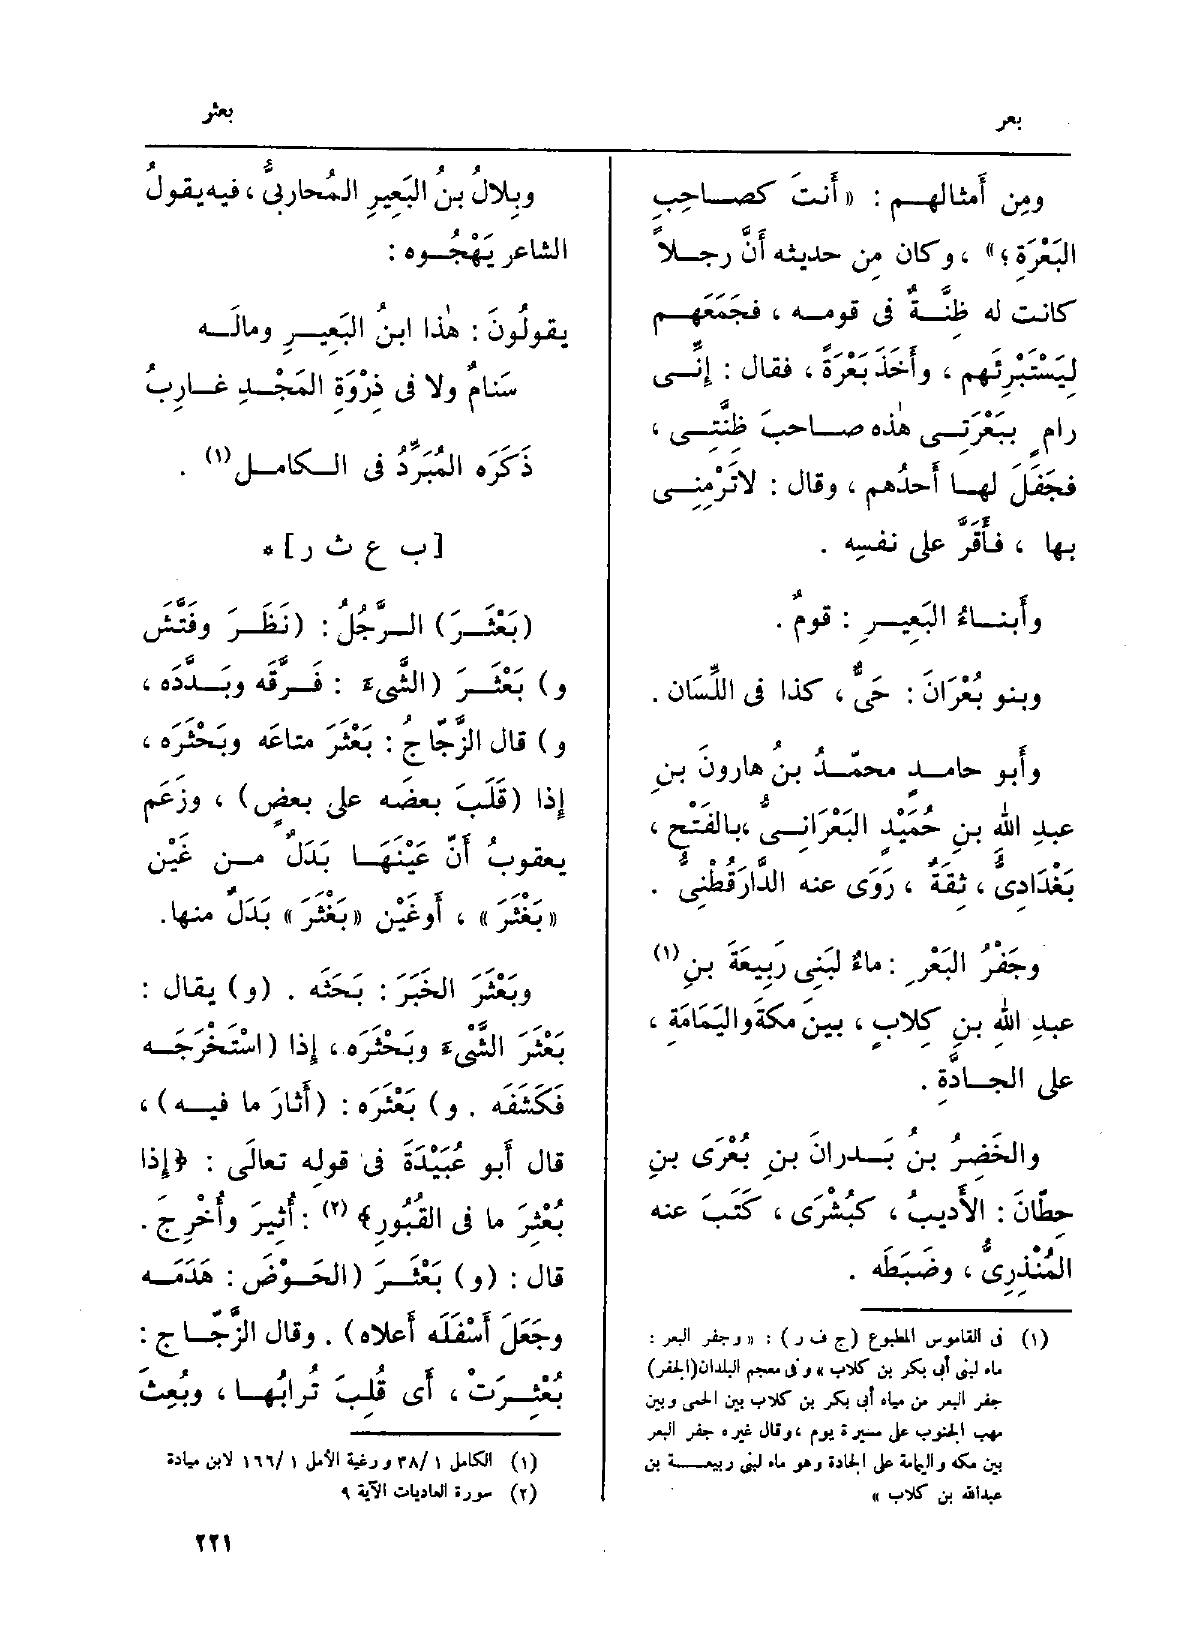 بعر
بعثر
ومِن أَمثالهـم : «أَنتَ كصـاحِبِ
البَعْرَةِ ؛» ، وكان مِن حديثه أَنَّ رجـلاً
كانت له ظِنَّـةٌ فى قومـه ، فجَمَعَهـم
لِيَسْتَبْرِئَهم ، وأَخَذَ بَعْرَةً ، فقال : إِنِّـى
رامٍ بِبَعْرَتِـى هٰذه صـاحبَ ظِنَّتِـى ،
فجَفَلَ لهـا أَحدُهم ، وقال : لاتَرْمِنِـى
بها ، فـأَقَرَّ على نفسِه .
وأَبنـاءُ البَعِيـرِ : قومٌ .
وبنو بُعْرَانَ : حَىٌّ ، كذا فى اللِّسَان .
وأَبو حامـدٍ محمّـدُ بنُ هارونَ بنِ
عبدِ اللهِ بنِ حُمَيْدٍ البَعْرَانِـىُّ ،بالفَتْح ،
بَغْدَادِىٌّ ، ثِقَةٌ ، رَوَى عنه الدَّارَقُطْنِىُّ .
وجَفْرُ البَعْرِ : ماءٌ لبَنِى رَبِيعَةَ بنِ(١)
عبدِ اللهِ بنِ كِلابٍ ، بينَ مكةَ واليَمَامَةِ ،
على الجـادَّةِ .
والخَضِرُ بنُ بَـدرانَ بنِ بُعْرَى بنِ
حِطّانَ : الأَديبُ ، كبُشْرَى ، كَتَبَ عنه
المُنْذِرِىُّ ، وضَبَطَه .
(١) فى القاموس المطبوع (ج ف ر) : «وجفر البعر :
ماء لبنى أبى بكر بن كلاب» وفى معجم البلدان(الجفر)
جفر البعر من مياه أبى بكر بن كلاب بين الحمى وبين
مهب الجنوب على مسيرة يوم ،وقال غيره جفر البعر
بين مكة واليمامة على الجادة وهو ماء لبنى ربيعـة بن
عبدالله بن كلاب »
وبِلالُ بنُ البَعِيرِ المُحاربىُّ ، فيه يقولُ
الشاعر يَهْجُـوه :
يقولُونَ : هٰذا ابنُ البَعِيـرِ ومالَـه
سَنامٌ ولا فى ذِرْوَةِ المَجْـدِ غـارِبُ
ذَكَرَه المُبَرِّدُ فى الـكامـل(١) .
[ب ع ث ر] *
(بَعْثَـرَ) الـرَّجُلُ : (نَظَـرَ وفَتَّشَ
و) بَعْثَـرَ (الشَّىءَ : فَـرَّقَه وبَـدَّدَه ،
و) قال الزَّجّاجُ : بَعْثَرَ متاعَه وبَحْثَرَه ،
إِذا (قَلَبَ بعضَه على بعضٍ) ، وزَعَم
يعقوبُ أَنّ عَيْنَهَـا بَدَلٌ مـن غَيْن
«بَغْثَرَ» ، أوغَيْن «بَغْثَرَ» بَدَلٌ منها.
وبَعْثَرَ الخَبَرَ : بَحَثَه . (و) يقال :
بَعْثَرَ الشَّىءَ وبَحْثَرَه ، إِذا (اسْتَخْرَجَـه
فَكَشَفَه . و) بَعْثَرَه : (أَثارَ ما فيـه) ،
قال أَبو عُبَيْدَةَ فى قولِه تعالَى : ﴿إِذا
بُعْثِرَ ما فى القُبُورِ﴾ (٢) : أُثِيرَ وأُخْرِجَ .
قال : (و) بَعْثَـرَ (الحَوْضَ : هَدَمَـه
وجَعَلَ أَسْفَلَه أَعلاه) . وقال الزَّجّـاج :
بُعْثِـرَتْ ، أَى قُلِبَ تُرابُهـا ، وبُعِثَ
(١) الكامل ٣٨/١ ورغبة الأمل ١٦٦/١ لابن ميادة
(٢) سورة العاديات الآية ٩
٢٢١